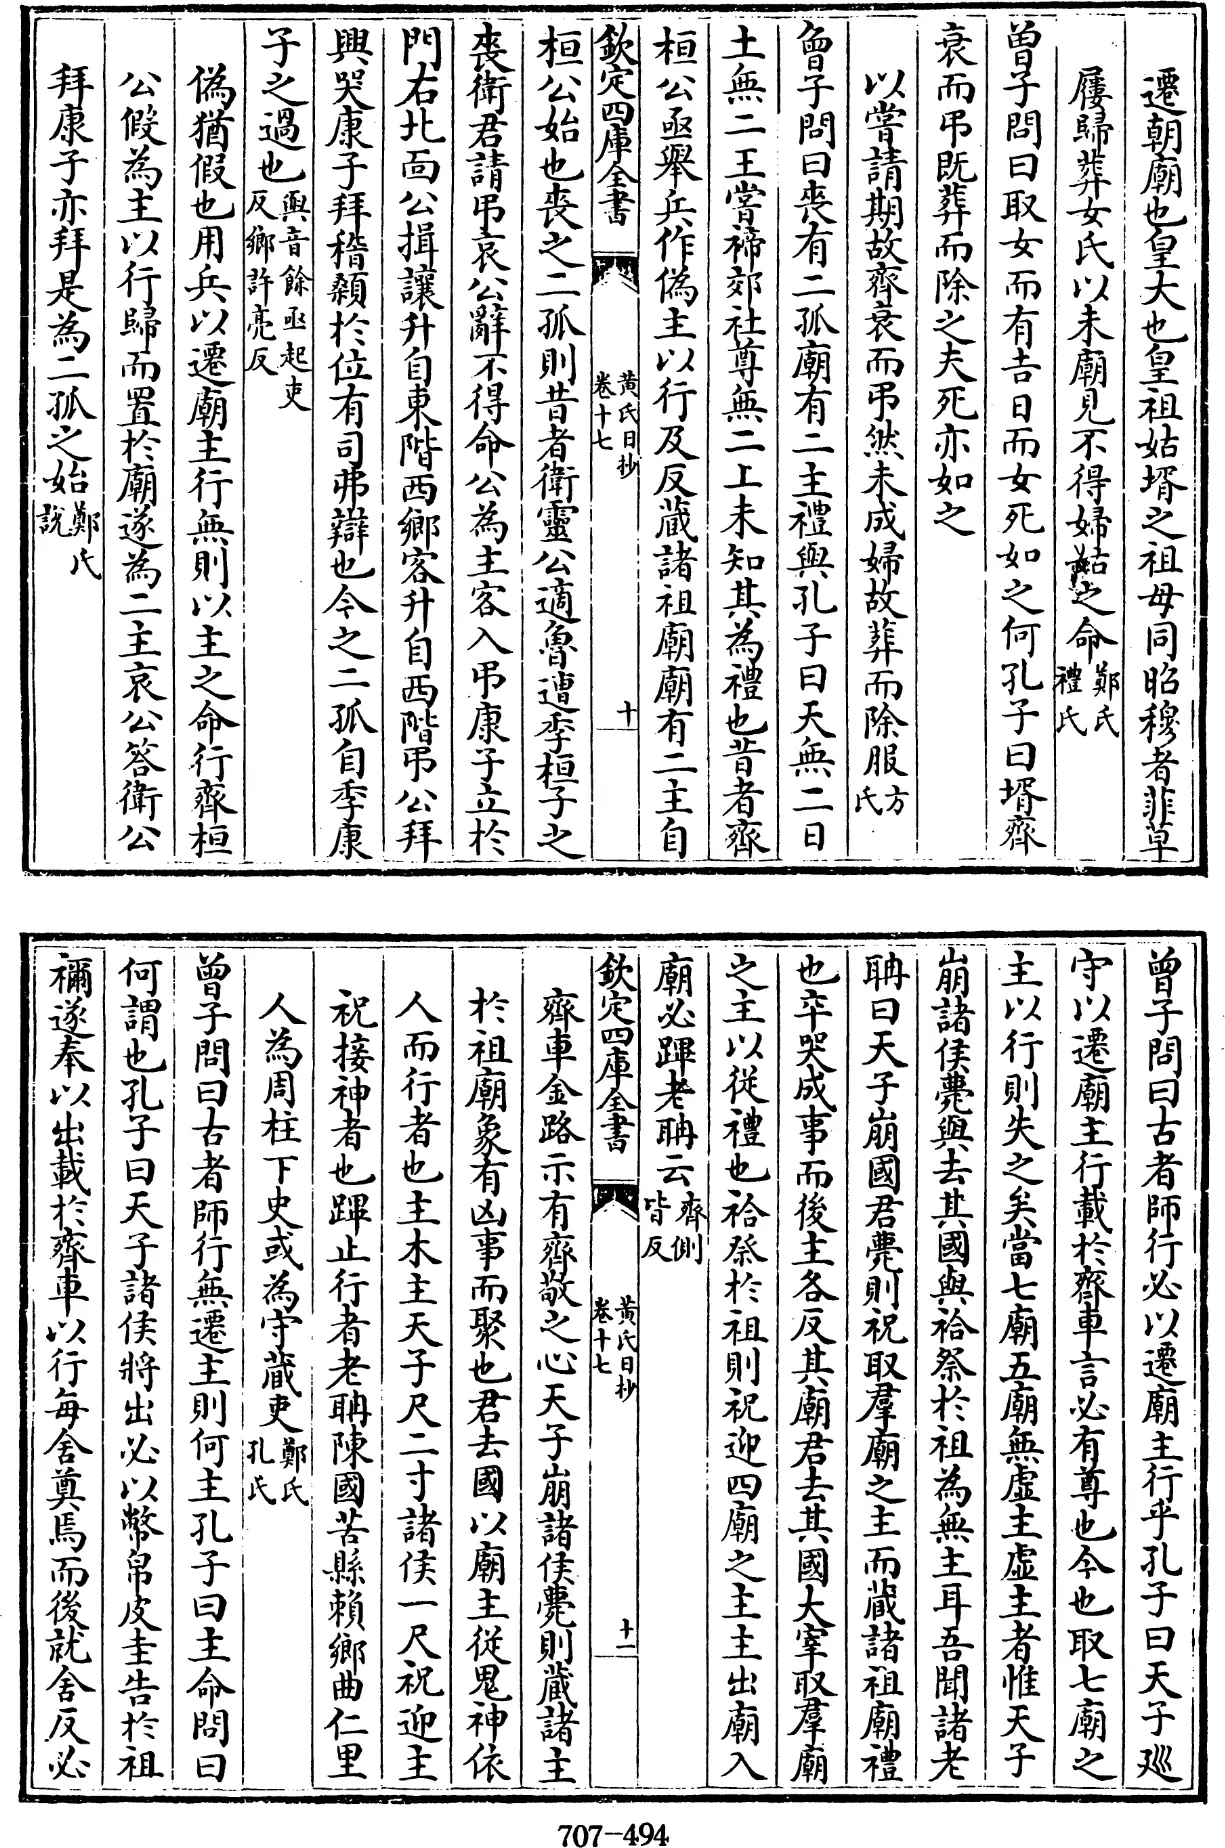 遷朝廟也皇大也皇祖姑壻之祖母同昭穆者菲草
屨歸葬女氏以未廟見不得婦姑之命鄭氏禮氏
曾子問曰取女而有吉日而女死如之何孔子曰壻齊
衰而弔既葬而除之夫死亦如之
以嘗請期故齊衰而弔然未成婦故葬而除服方氏
曾子問曰喪有二孤廟有二主禮與孔子曰天無二日
土無二王嘗禘郊社尊無二上未知其為禮也昔者齊
桓公亟舉兵作偽主以行及反藏諸祖廟廟有二主自
欽定四庫全書
黄氏日抄
卷十七
十
桓公始也喪之二孤則昔者衛靈公適魯遭季桓子之
喪衛君請弔哀公辭不得命公為主客入弔康子立於
門右北面公揖讓升自東階西鄉客升自西階弔公拜
興哭康子拜稽顙於位有司弗辯也今之二孤自季康
子之過也輿音餘亟起吏反鄉許亮反
偽猶假也用兵以遷廟主行無則以主之命行齊桓
公假為主以行歸而置於廟遂為二主哀公答衛公
拜康子亦拜是為二孤之始鄭氏說
曾子問曰古者師行必以遷廟主行乎孔子曰天子廵
守以遷廟主行載於齊車言必有尊也今也取七廟之
主以行則失之矣當七廟五廟無虛主虛主者惟天子
崩諸侯薨與去其國與祫祭於祖為無主耳吾聞諸老
聃曰天子崩國君薨則祝取羣廟之主而藏諸祖廟禮
也卒哭成事而後主各反其廟君去其國大宰取羣廟
之主以從禮也祫祭於祖則祝迎四廟之主主出廟入
廟必蹕老聃云齊側皆反
欽定四庫全書
黄氏日抄
卷十七
十一
齊車金路示有齊敬之心天子崩諸侯薨則藏諸主
於祖廟象有凶事而聚也君去國以廟主從鬼神依
人而行者也主木主天子尺二寸諸侯一尺祝迎主
祝接神者也蹕止行者老聃陳國苦縣賴鄉曲仁里
人為周柱下史或為守藏吏鄭氏孔氏
曾子問曰古者師行無遷主則何主孔子曰主命問曰
何謂也孔子曰天子諸侯將出必以幣帛皮圭告於祖
禰遂奉以出載於齊車以行每舍奠焉而後就舍反必
707-494